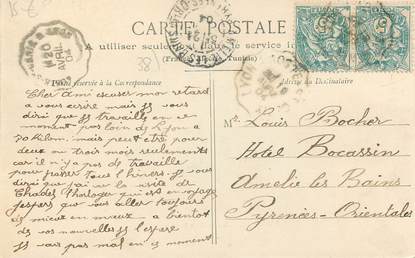 CARTE POSTALE
A utiliser seulement
Tunisie)
réservé à la Correspondance
Adresse du Destinataire
Cher Ami excuser mon retard
a vous écrire mais je vous
dirai que je travaille en ce
moment pas loin de Lyon a
kilom. mais peut être pour
deux ou trois mois seulement
car il n'y a pas de travaille
pour passer tous l'hiver. je vous
dirai que j'ai eu la visite de
Charles qui est en voyage
j'espere que vous aller toujours
de mieux en mieux a bientôt
de vos nouvelles je l'espere
je vais pas mal en ce moment
Mr. Louis Bocher
Hotel Bocassin
Amelie les Bains
Pyrenées-Orientales